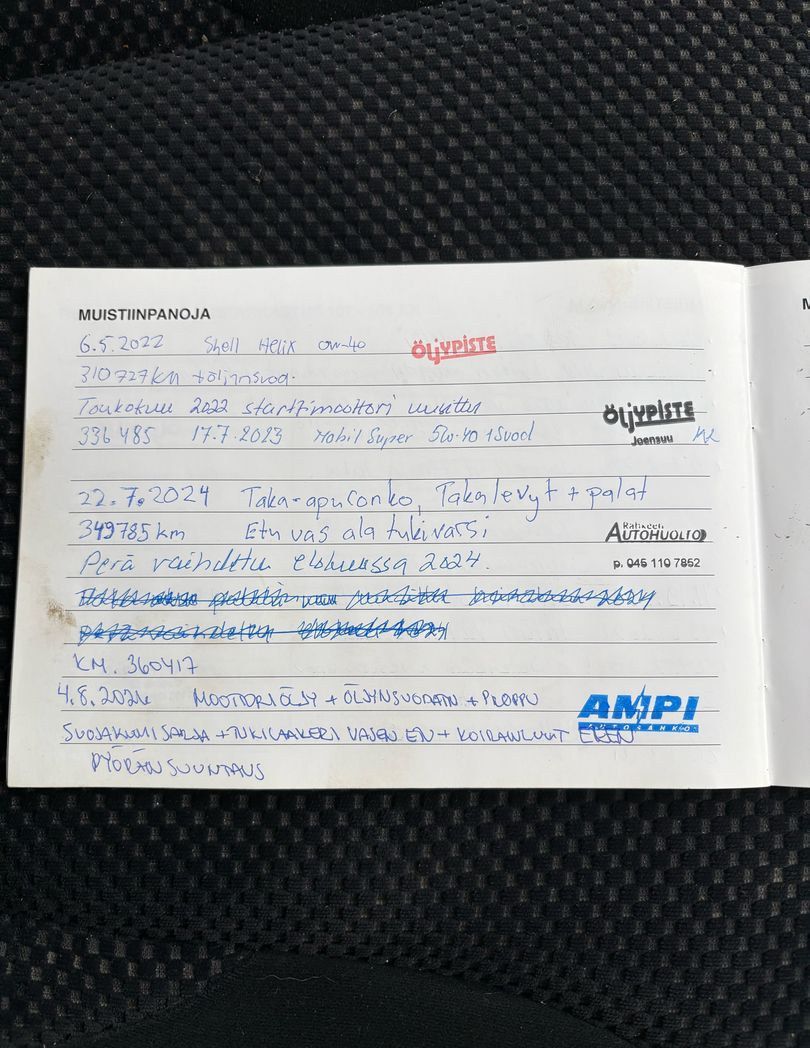 MUISTIINPANOJA
6.5.2022 Shell Helix 0W-40 ÖLJYPISTE
310727km + öljynsuod.
Toukokuu 2022 starttimoottori uusittu
ÖLJYPISTE
336 485 17.7.2023 Mobil Super 5W-40 + Suod Joensuu
22.7.2024 Taka-apurunko, Takalevyt + palat
349785km Etu vas ala tukivarsi AUTOHUOLTO
Perä vaihdettu elokuussa 2024. p. 045 110 7852
KM. 360417
4.8.2024 MOOTTORIÖLJY + ÖLJYNSUODATIN + PROPPU AMPI
AUTOSÄHKÖ
SUOJAKUMISARJA + TUKILAAKERI VASEN ETU + KOIRANLUUT ETEEN
PYÖRÄNSUUNTAUS